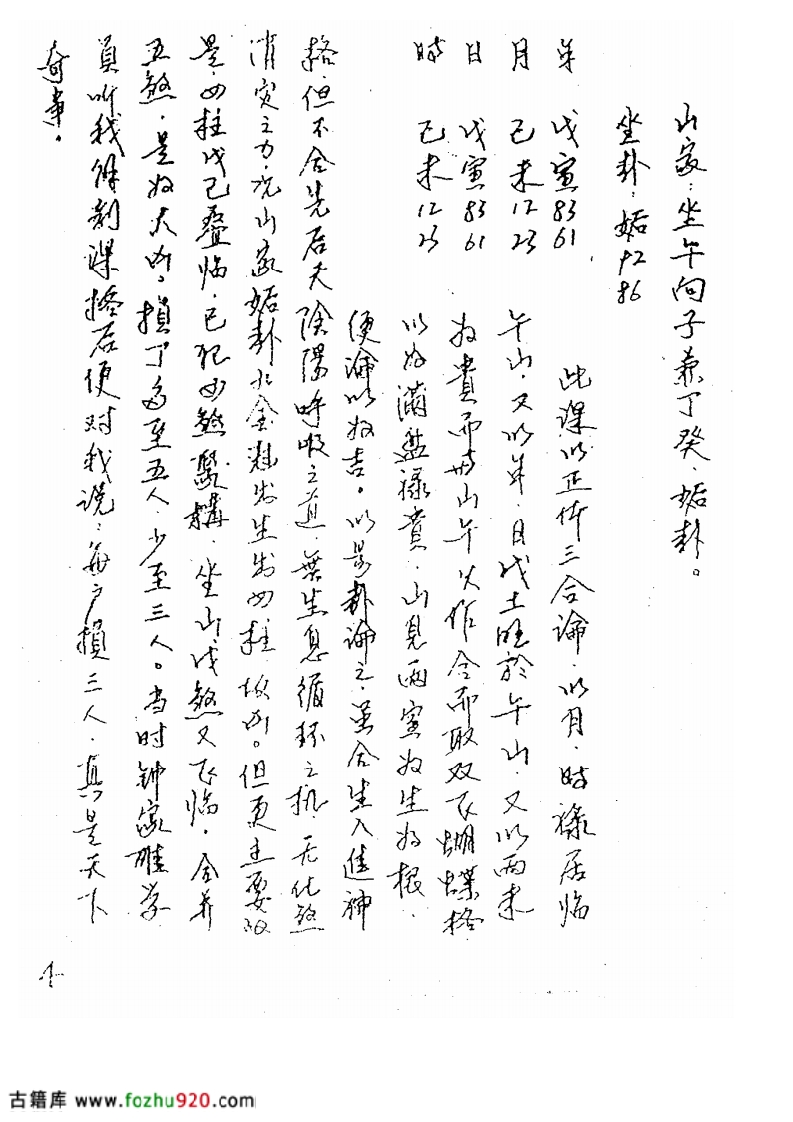 山家：坐午向子兼丁癸，姤卦。
坐卦：姤 92 86
年 戊寅 83 61
月 己未 12 23
日 戊寅 83 61
时 己未 12 23
此课以正体三合论，以月，时禄居临
午山，又以年，日戊土旺於午山，又以两未
为贵而与山午火作合而取双飞蝴蝶格
以为满盘禄贵，山见两寅为生为根，
便论以为吉。以易卦论之，虽合生入进神
格，但不合先后天阴阳呼吸之道，无生息循环之机，无化煞
消灾之力，况山家姤卦
是，四柱戊己叠临，已犯四煞聚构，坐山戊煞又飞临，合并
五煞，是为大凶，损丁多至五人，少至三人。当时钟家
员听我解剖课格后便对我说：每户损三人，真是天下
奇事。
古籍库 www.fozhu920.com